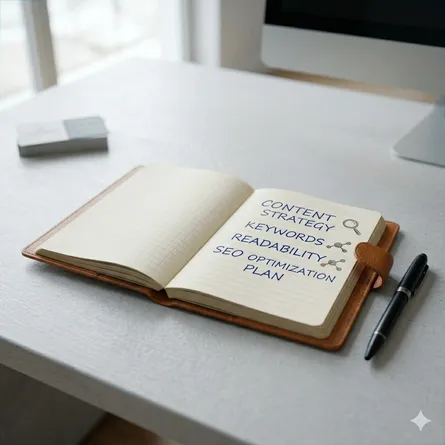 CONTENT
STRATEGY
KEYWORDS
READABILITY
SEO OPTIMIZATION
PLAN